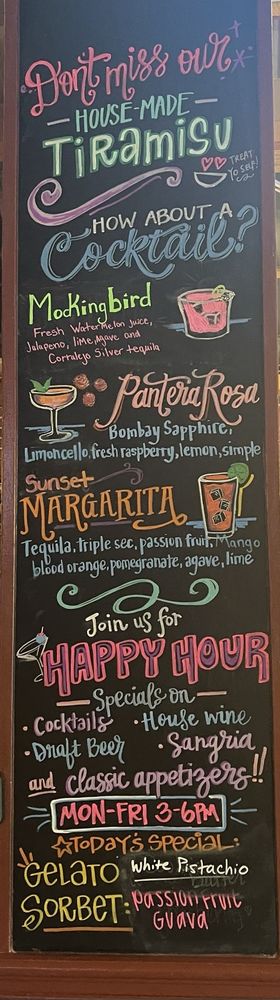 Don't miss our
HOUSE-MADE
TiRAMiSU
TREAT
YO SELF!
HOW ABOUT A
Cocktail?
Mockingbird
Fresh Watermelon Juice,
Jalapeno, lime, Agave and
Corralejo Silver tequila
Pantera Rosa
Bombay Sapphire,
Limoncello, fresh raspberry, lemon, simple
Sunset
MARGARITA
Tequila, triple sec, passion fruit, Mango
blood orange, pomegranate, agave, lime
Join us for
HAPPY HOUR
Specials on
• Cocktails • House wine
• Draft Beer • Sangria
and classic appetizers!!
MON-FRI 3-6PM
☆TODAY'S SPECIAL:
GELATO White Pistachio
SORBET: Passion Fruit
Guava